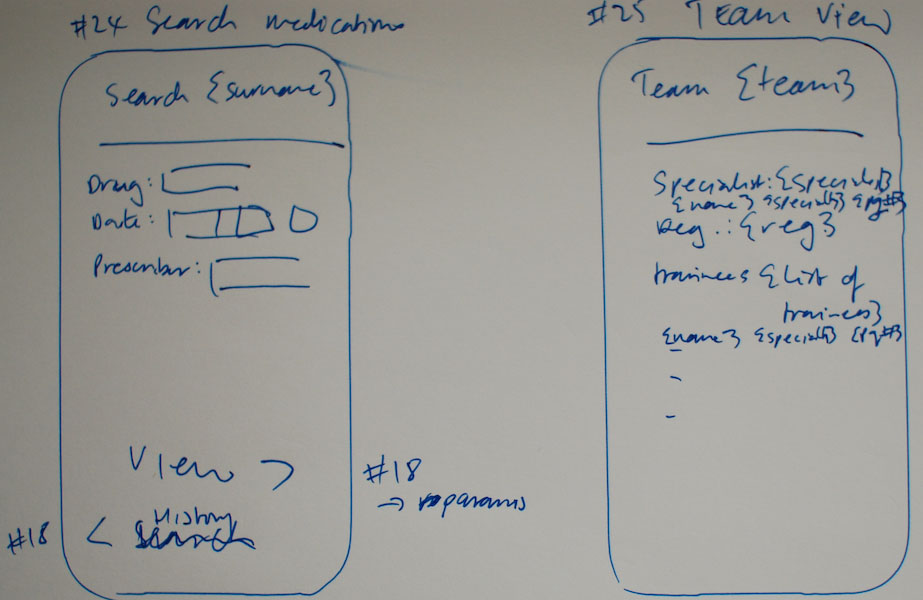 #24 Search medications
Search {surname}
Drug:
Date:
Prescriber:
View >
#18
→ params
History
#18 < Search
#25 Team View
Team {team}
Specialist: {specialist}
{name} {specialty} {pg#}
Reg.: {reg}
trainees {list of
trainees}
{name} {specialty} {pg#}
-
-
-